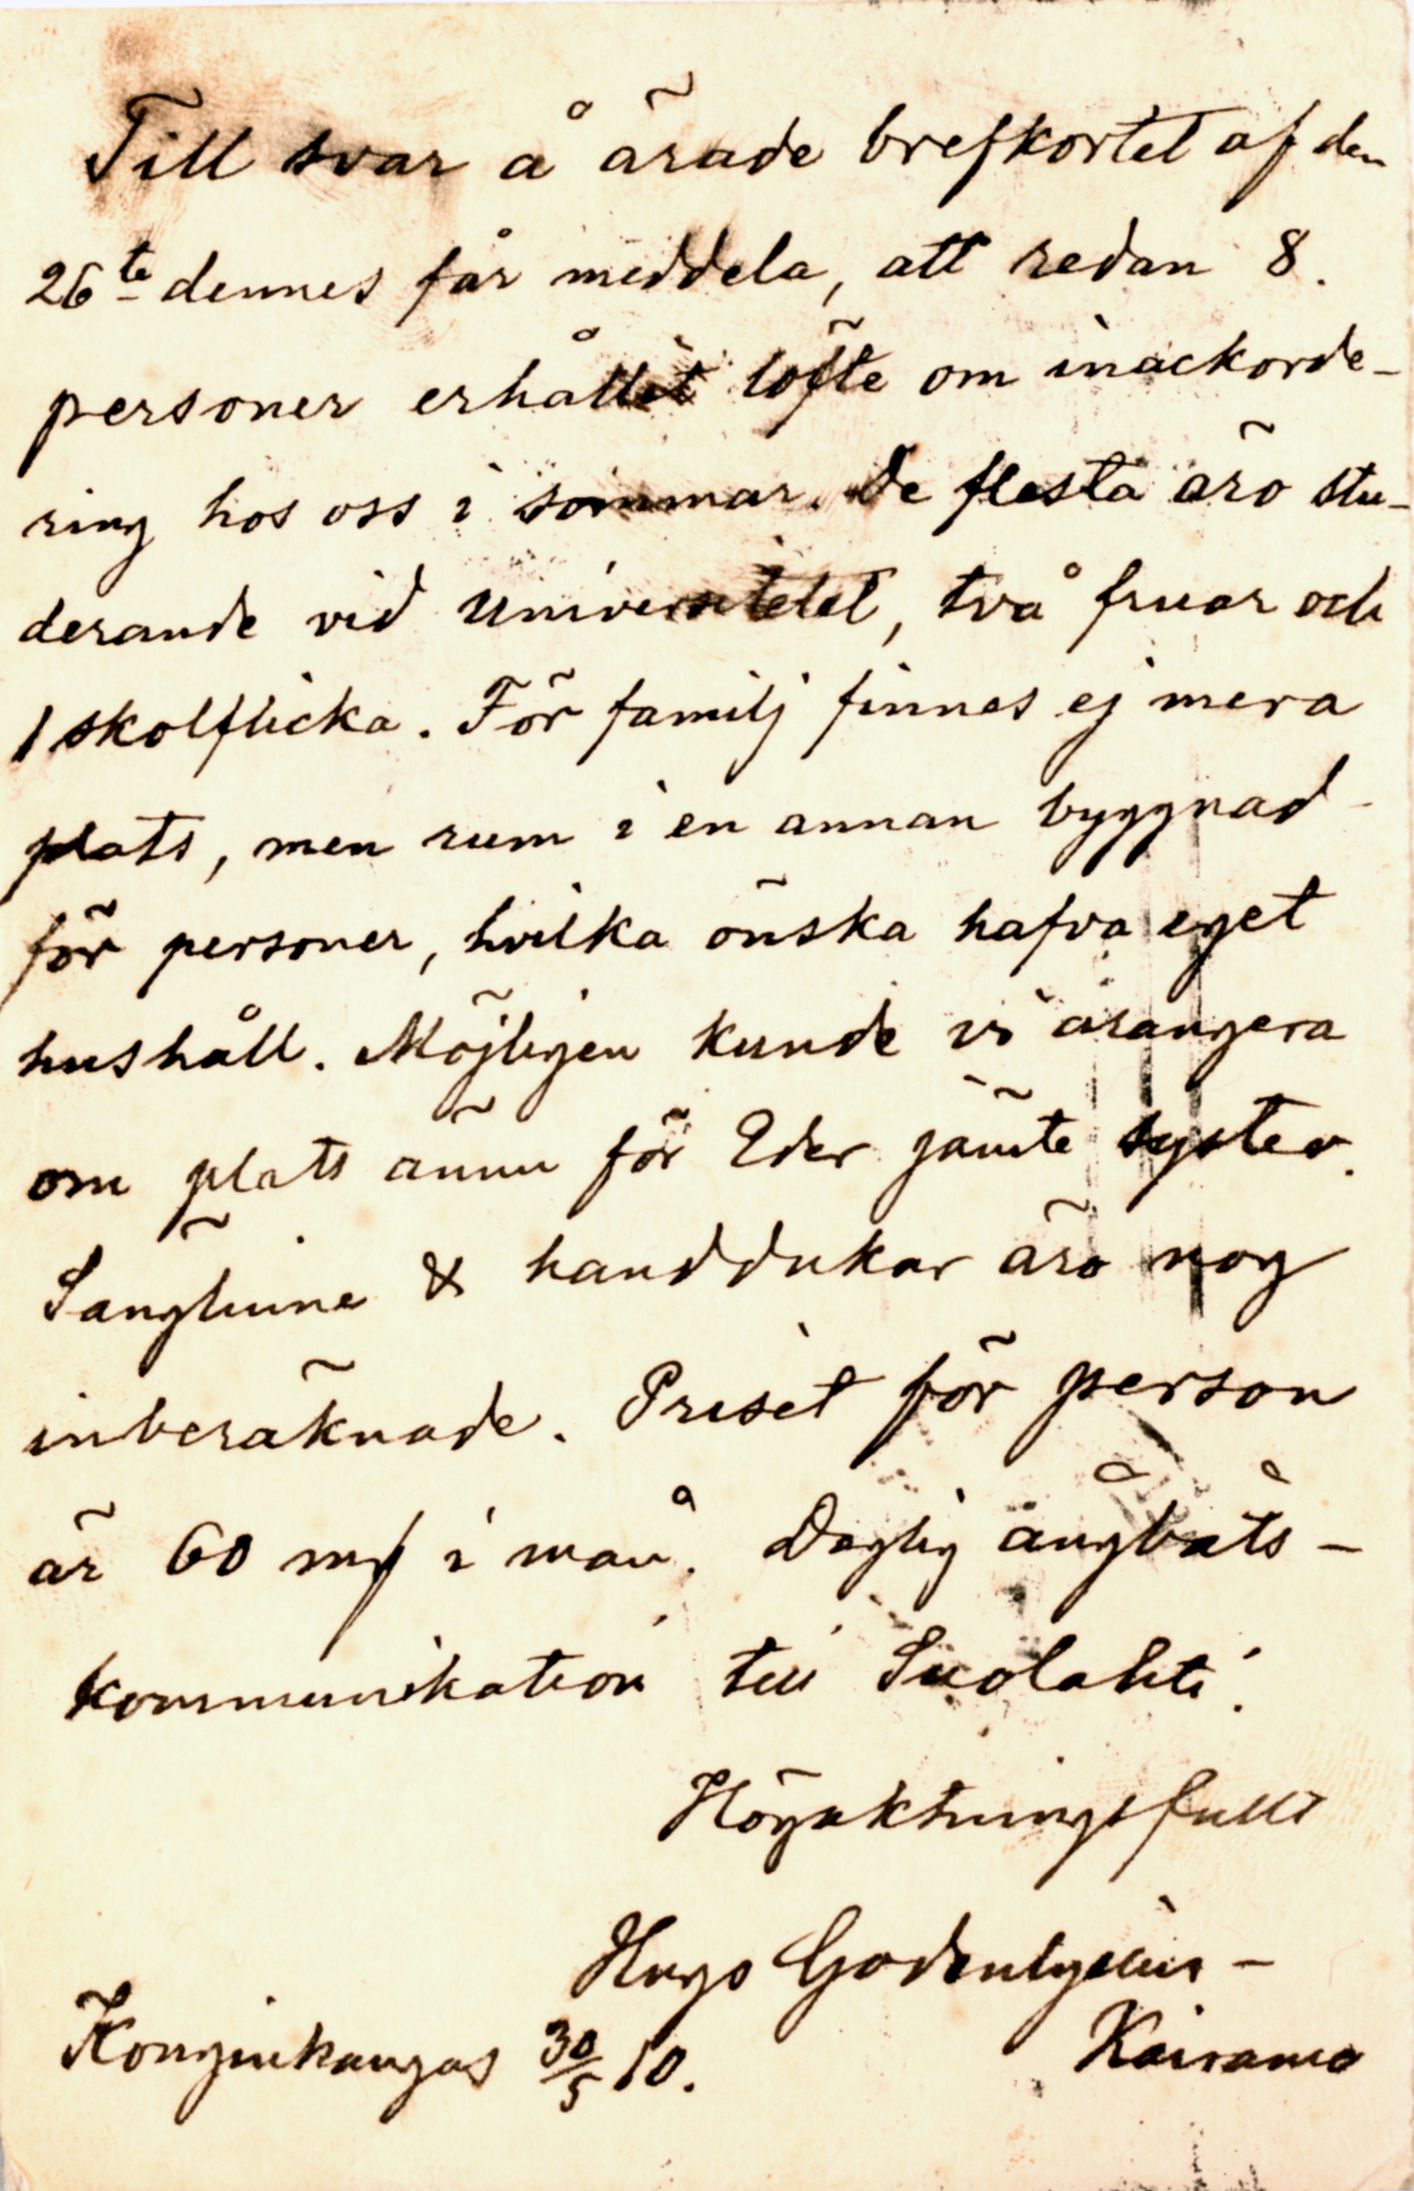 Till svar å ärade brefkortet af den
26te dennes får meddela, att redan 8.
personer erhållit löfte om inackorde-
ring hos oss i sommar. De flesta äro stu-
derande vid Universitetet, två fruar och
1 skolflicka. För familj finnes ej mera
plats, men rum i en annan byggnad
för personer, hvilka önska hafva eget
hushåll. Möjligen kunde vi arangera
om plats ännu för Eder jämte syster.
Sänglinne & handdukar äro nog
inberäknade. Priset för person
är 60 mk i mån. Daglig ångbåts-
kommunikation till Suolahti.
Högaktningsfullt
Hugo Godenhjelm-
Kairamo
Konginkangas 30/5 10.